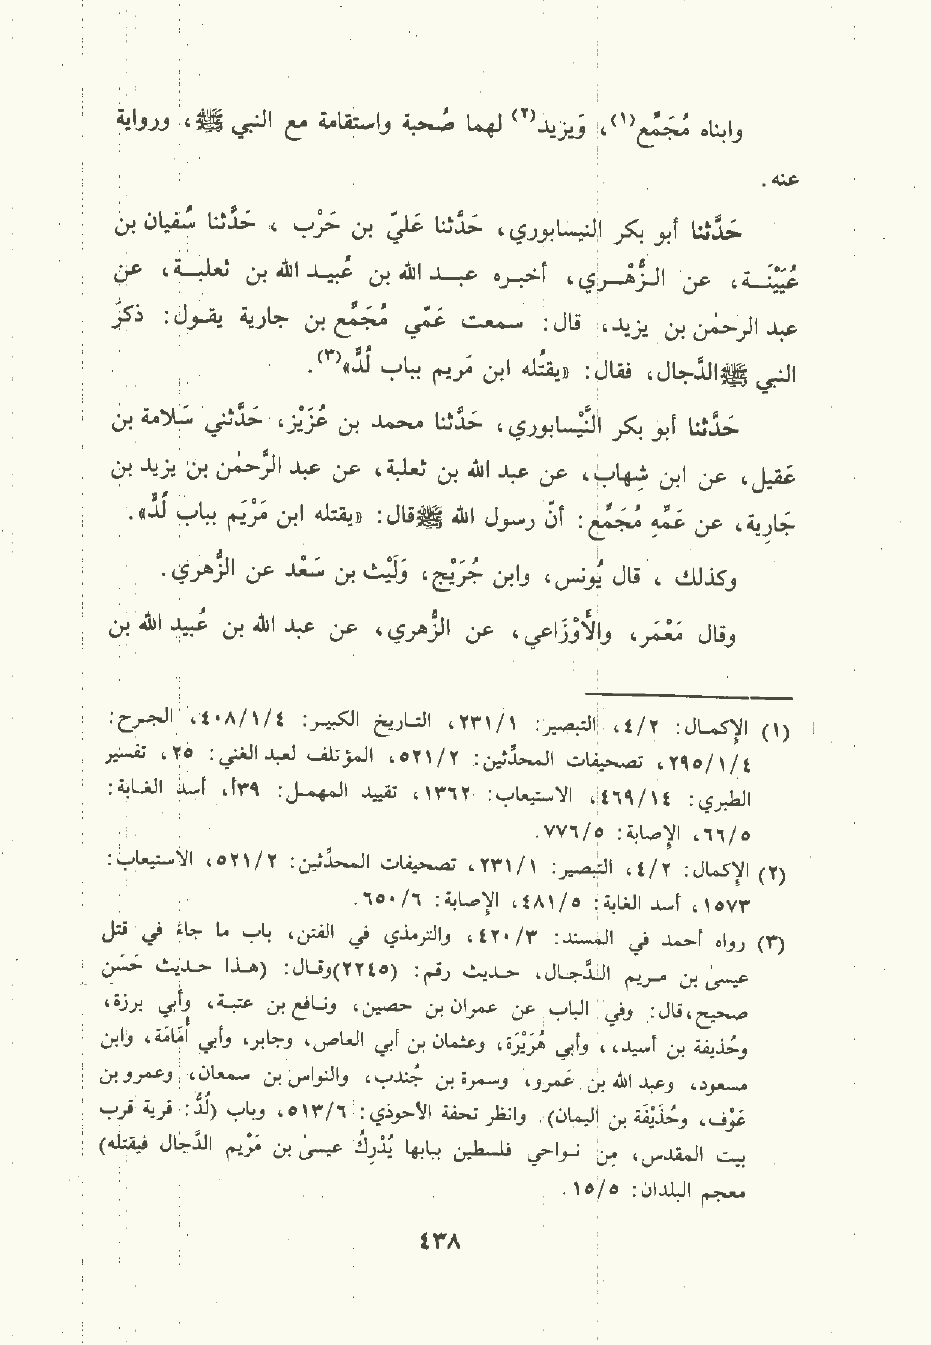 وابناه مُجَمِّع(١)، وَيزيد(٢) لهما صُحبة واستقامة مع النبي ﷺ، ورواية
عنه.
حَدَّثنا أبو بكر النيسابوري، حَدَّثنا عَليّ بن حَرْب ، حَدَّثنا سُفيان بن
عُيَيْنَـة، عن الـزُّهْـري، أخبـره عـبـد الله بن عُبيـد الله بن ثعلبـة، عن
عبد الرحمٰن بن يزيد، قال: سمعت عَمِّي مُجَمِّع بن جارية يقـول: ذكرَ
النبي ﷺالدَّجال، فقال: «يقتُله ابن مَريم بباب لُدَّ»(٣).
حَدَّثنا أبو بكر النَّيْسابوري، حَدَّثنا محمد بن عُزَيْز، حَدَّثني سَلامة بن
عَقيل، عن ابن شِهاب، عن عبد الله بن ثعلبة، عن عبد الرَّحمٰن بن يزيد بن
جَارِية، عن عَمِّهِ مُجَمِّع: أنّ رسول الله ﷺقال: «يقتله ابن مَرْيَم بباب لُدَّ».
وكذلك ، قال يُونس، وابن جُرَيْج، وَلَيْث بن سَعْد عن الزُّهري.
وقال مَعْمَر، والأَوْزَاعي، عن الزُّهري، عن عبد الله بن عُبيد الله بن
(١) الإِكمـال: ٤/٢، التبصير: ٢٣١/١، التـاريخ الكبيـر: ٤٠٨/١/٤، الجـرح:
٢٩٥/١/٤، تصحيفات المحدَّثين: ٥٢١/٢، المؤتلف لعبد الغني: ٢٥، تفسير
الطبري: ٤٦٩/١٤، الاستيعاب: ١٣٦٢، تقييد المهمـل: ٣٩أ، أسد الغـابة:
٦٦/٥، الإِصابة: ٧٧٦/٥.
(٢) الإِكمال: ٤/٢، التبصير: ٢٣١/١، تصحيفات المحدَّثين: ٥٢١/٢، الاستيعاب:
١٥٧٣، أسد الغابة: ٤٨١/٥، الإِصابة: ٦٥٠/٦.
(٣) رواه أحمـد في المسند: ٤٢٠/٣، والترمذي في الفتن، باب ما جاءَ في قتل
عيسىٰ بن مريم الدَّجـال، حـديث رقم: (٢٢٤٥)وقـال: (هـذا حـديث حَسَن
صحيح،قال: وفي الباب عن عمران بن حصين، ونـافع بن عتبـة، وأبي برزة،
وحُذيفة بن أسيد، ، وأبي هُرَيْرَة، وعثمان بن أبي العاص، وجابر، وأبي أُمَامَة، وابن
مسعود، وعبد الله بن عَمرو، وسمرة بن جُندب، والنواس بن سمعان، وعمرو بن
عَوْف، وحُذَيْفَة بن اليمان). وانظر تحفة الأحوذي: ٥١٣/٦، وباب (لُدّ): قرية قرب
بيت المقدس، مِن نـواحي فلسطين ببابها يُدْرِكُ عيسىٰ بن مَرْيَم الدَّجال فيقتله)
معجم البلدان: ١٥/٥.
٤٣٨